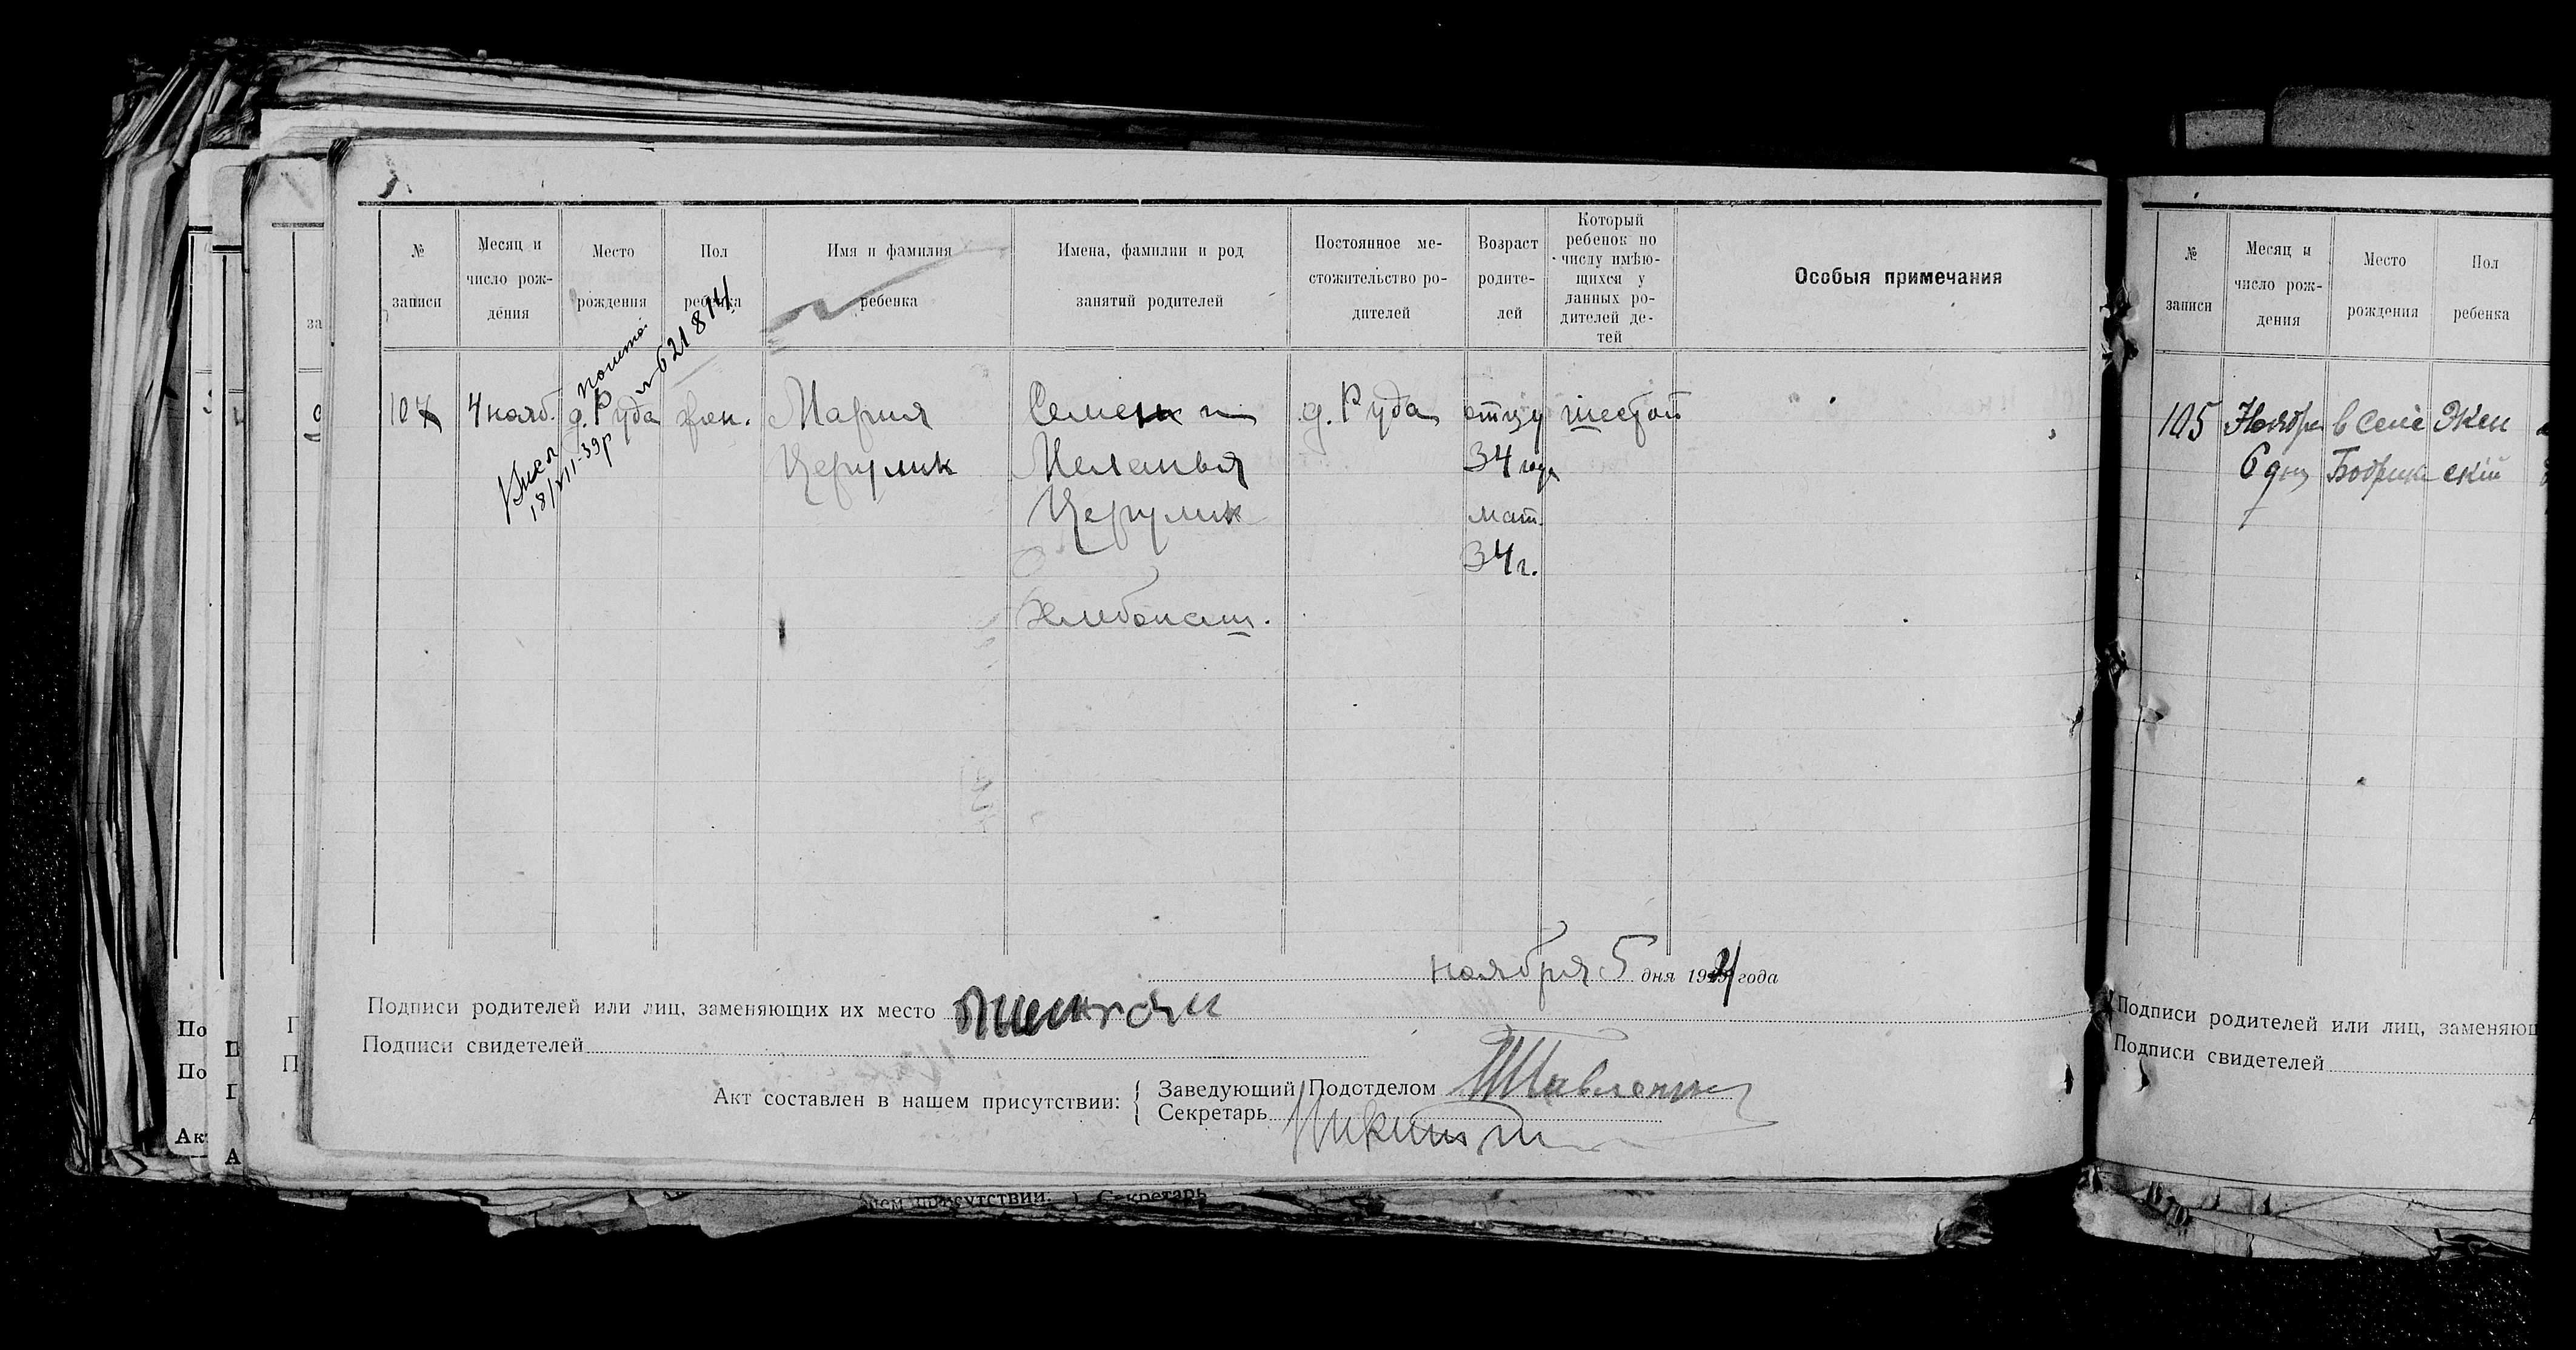 № записи
Месяц и число рождения
Место рождения
Пол ребенка
Имя и фамилия ребенка
Имена, фамилии и род занятий родителей
Постоянное местожительство родителей
Возраст родителей
Который ребенок по числу имѣющихся у данных родителей детей
Особыя примечания
№ 621814
18/VII-39р
107 4 нояб. д. Руда жен. Мария Семен и д. Руда отцу шестой
Церулик Меланья 34 года
Церулик мат.
34 г.
Хлебопаш.
ноября 5 дня 19 года
Подписи родителей или лиц, заменяющих их место
Подписи свидетелей
Акт составлен в нашем присутствии:
Заведующий Подотделом
Секретарь
№ записи
Месяц и число рождения
Место рождения
Пол ребенка
105 Ноябр в селе Жен
6 дня ский
Подписи родителей или лиц, заменяющ
Подписи свидетелей
нем присутствии. Секретарь